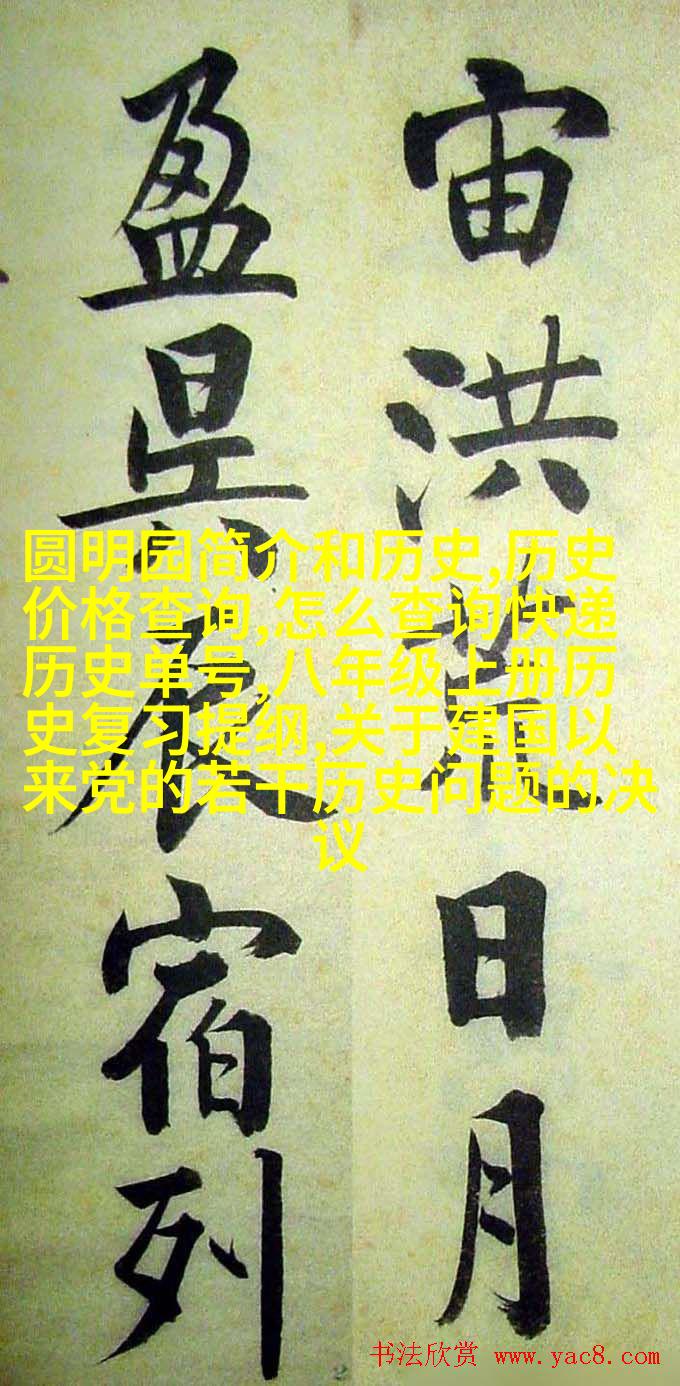 宙洪荒日月
盈昃辰宿列
圆明园简介和历史,历史
价格查询,怎么查询快递
历史单号,八年级上册历
史复习提纲,关于建国以
来党的若干历史问题的决
议
书法欣赏 www.yac8.com